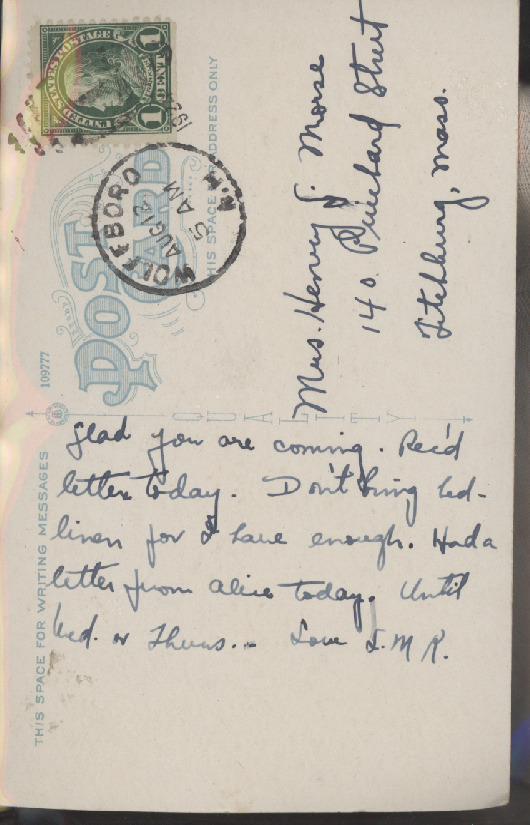 UNITED STATES POSTAGE
1 CENT 1
WOLFEBORO
AUG 12
5 AM
N.H.
192
POST
CARD
THIS SPACE FOR ADDRESS ONLY
109777
QUALITY
THIS SPACE FOR WRITING MESSAGES
Mrs. Henry J. Morse
140 Prichard Street
Fitchburg, Mass.
Glad you are coming. Rec'd
letter today. Don't bring bed-
linen for I have enough. Had a
letter from Alice today. Until
Wed. or Thurs. - Love I. M. R.